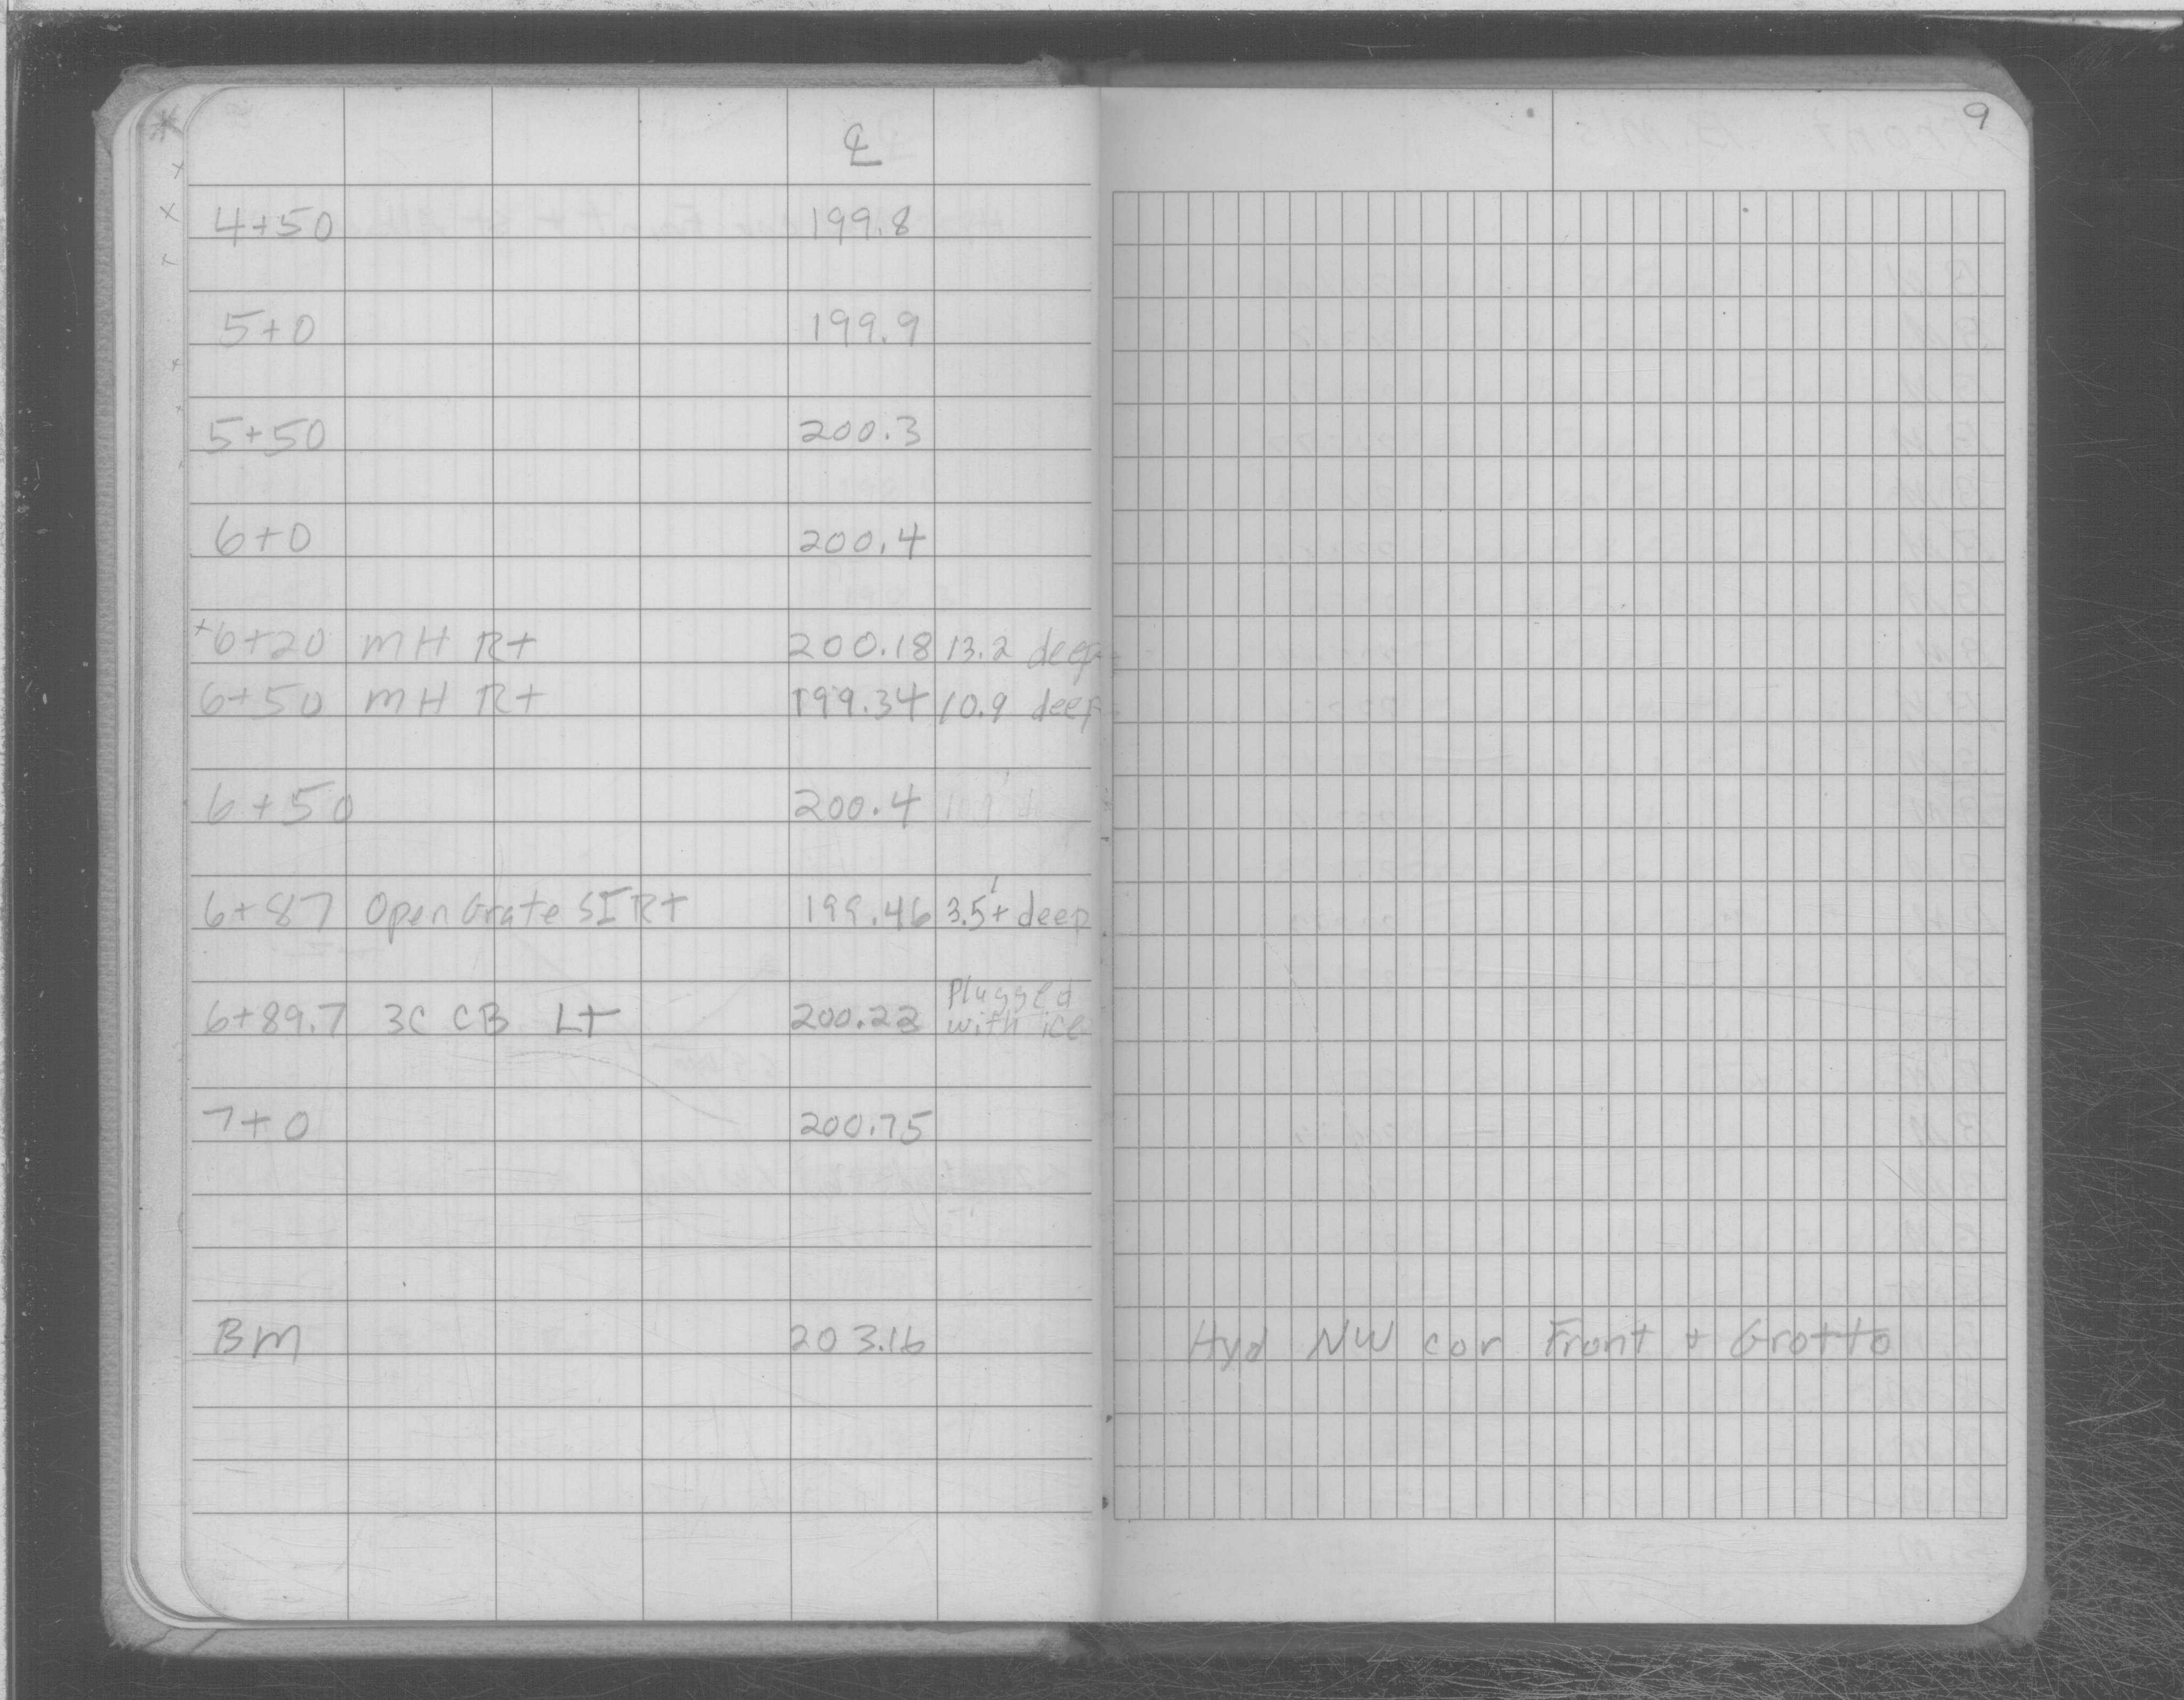 9
℄
4+50 199.8
5+0 199.9
5+50 200.3
6+0 200.4
+6+20 MH Rt 200.18 13.2 deep
6+50 MH Rt 199.34 10.9 deep
6+50 200.4
6+87 Open Grate SI Rt 199.46 3.5'+ deep
6+89.7 3C CB Lt 200.22 Plugged
with ice
7+0 200.75
BM 203.16 Hyd NW cor Front + Grotto